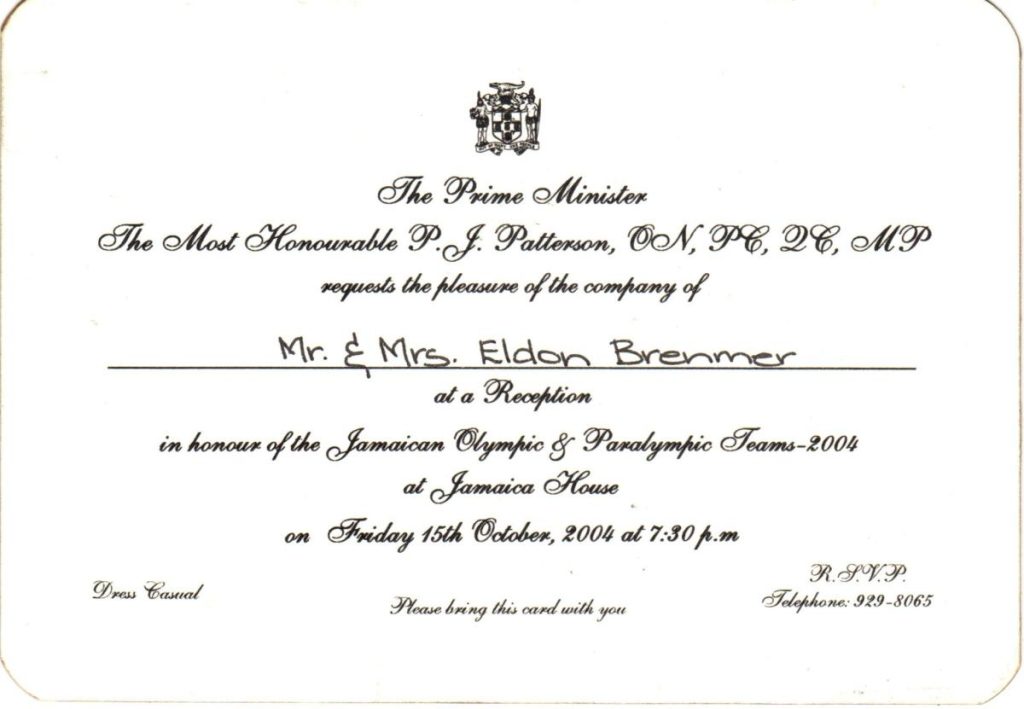 The Prime Minister
The Most Honourable P. J. Patterson, ON, PC, QC, MP
requests the pleasure of the company of
Mr. & Mrs. Eldon Bremmer
at a Reception
in honour of the Jamaican Olympic & Paralympic Teams-2004
at Jamaica House
on Friday 15th October, 2004 at 7:30 p.m
Dress Casual
Please bring this card with you
R.S.V.P.
Telephone: 929-8065